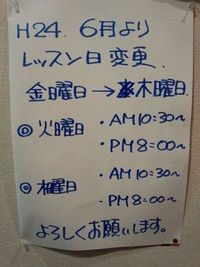 H24. 6月より
レッスン日 変更.
金曜日→木曜日.
◎火曜日 ・AM10:30～
・PM8:00～
◎木曜日 ・AM10:30～
・PM8:00～
よろしくお願いします。